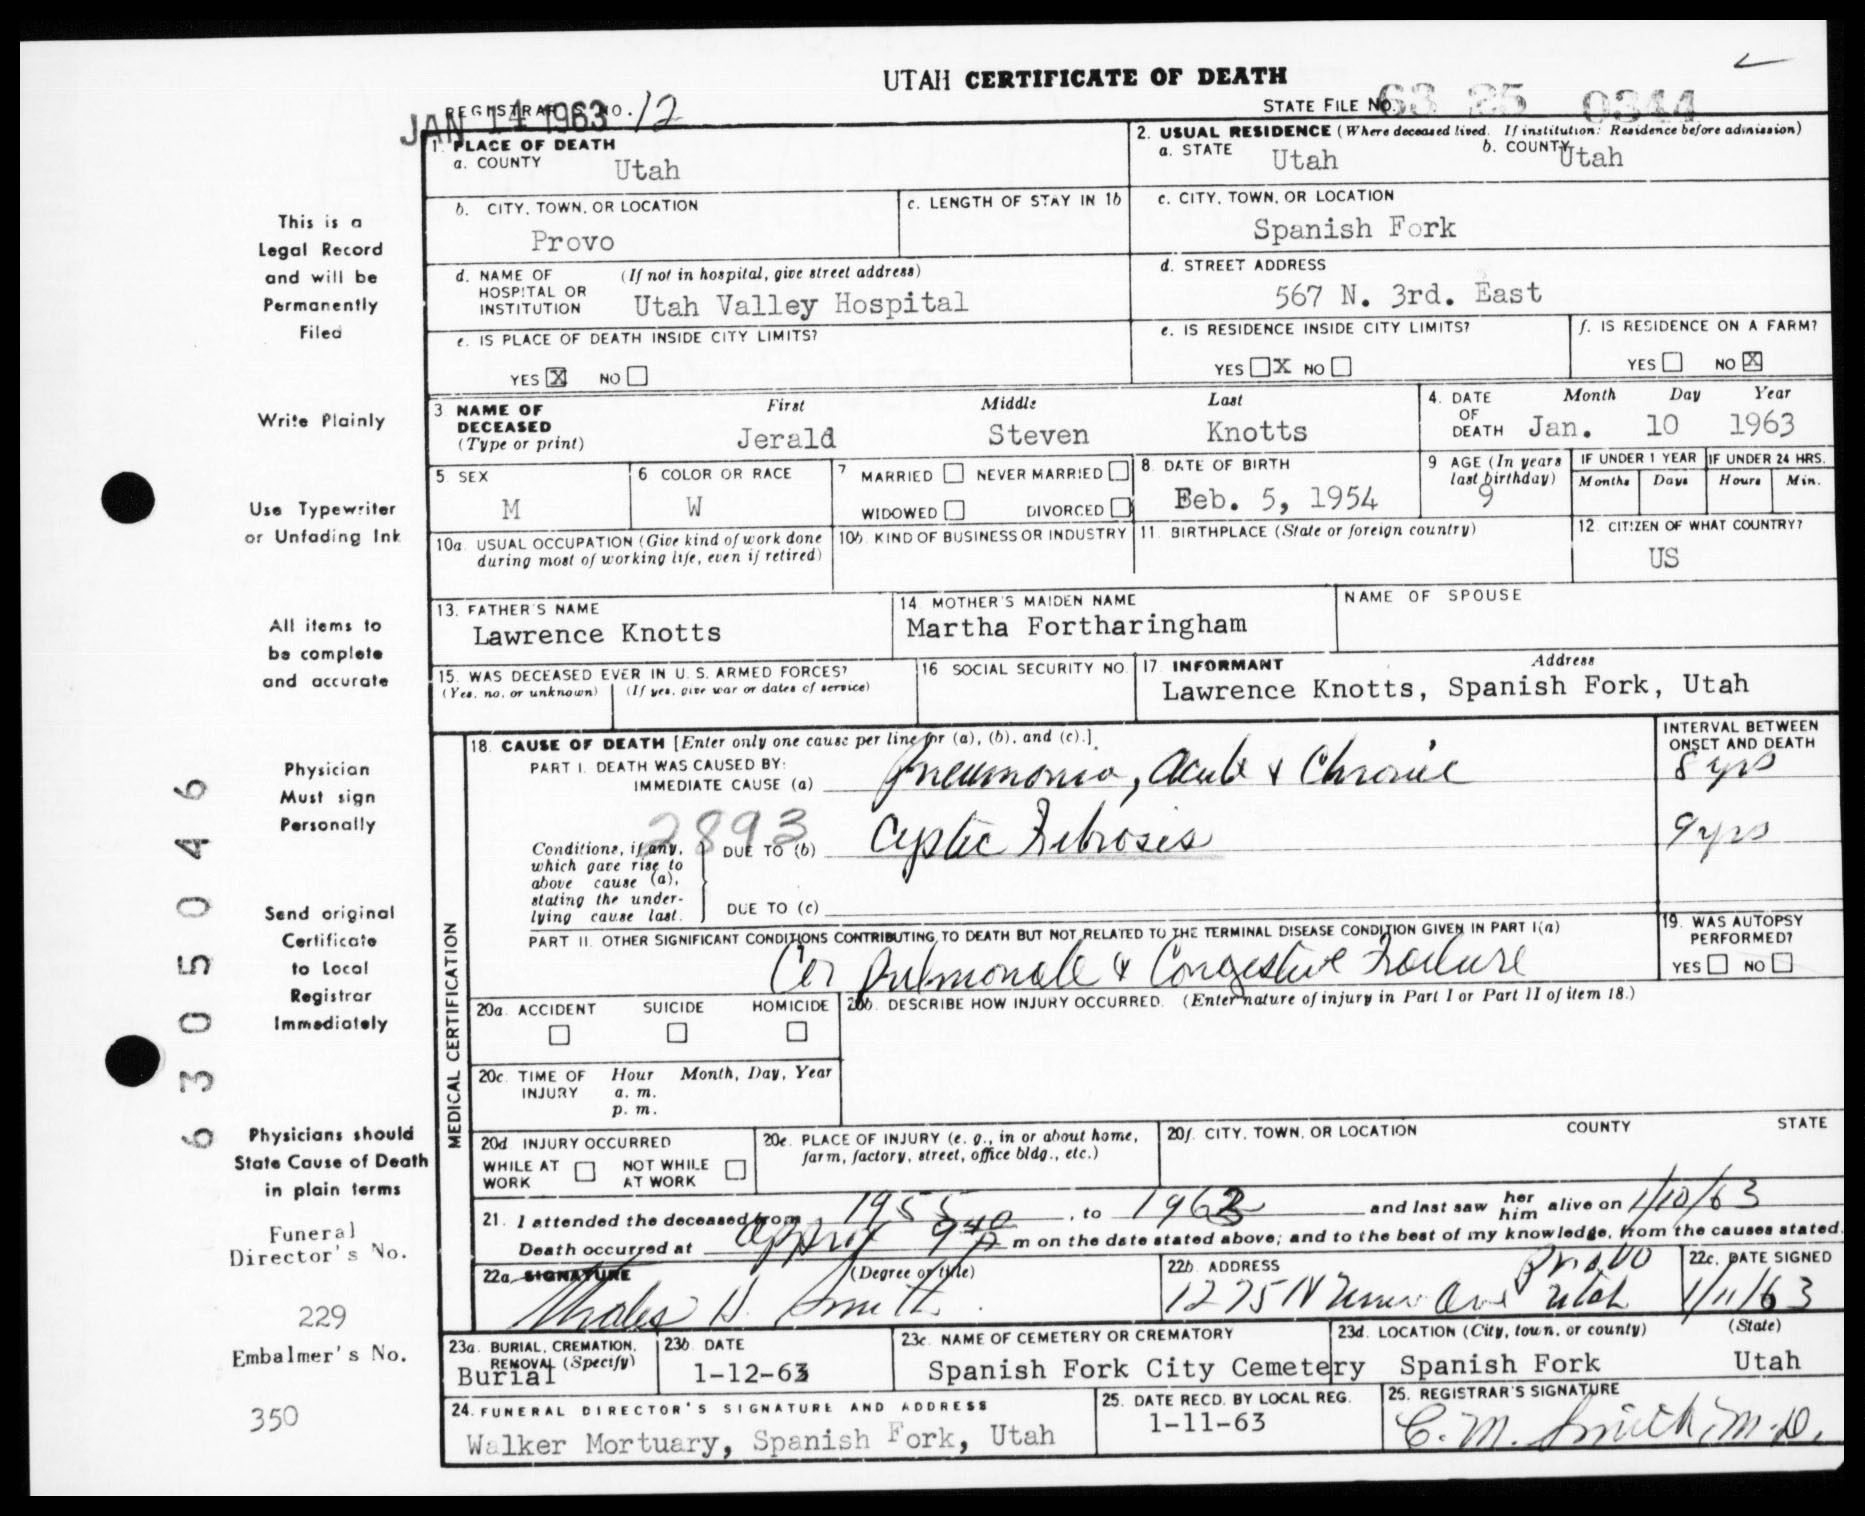 UTAH CERTIFICATE OF DEATH
REGISTRAR'S NO. 12
JAN 14 1963
STATE FILE NO. 63 25 0344
1. PLACE OF DEATH
a. COUNTY Utah
2. USUAL RESIDENCE (Where deceased lived. If institution: Residence before admission)
a. STATE Utah b. COUNTY Utah
b. CITY, TOWN, OR LOCATION Provo
c. LENGTH OF STAY IN 1b
c. CITY, TOWN, OR LOCATION Spanish Fork
d. NAME OF HOSPITAL OR INSTITUTION (If not in hospital, give street address) Utah Valley Hospital
d. STREET ADDRESS 567 N. 3rd. East
e. IS PLACE OF DEATH INSIDE CITY LIMITS?
YES X NO
e. IS RESIDENCE INSIDE CITY LIMITS?
YES X NO
f. IS RESIDENCE ON A FARM?
YES NO X
3. NAME OF DECEASED (Type or print)
First Middle Last
Jerald Steven Knotts
4. DATE OF DEATH
Month Day Year
Jan. 10 1963
5. SEX M
6 COLOR OR RACE W
7 MARRIED NEVER MARRIED
WIDOWED DIVORCED
8. DATE OF BIRTH Feb. 5, 1954
9 AGE (In years last birthday) 9
IF UNDER 1 YEAR Months Days
IF UNDER 24 HRS. Hours Min.
10a. USUAL OCCUPATION (Give kind of work done during most of working life, even if retired)
10b. KIND OF BUSINESS OR INDUSTRY
11. BIRTHPLACE (State or foreign country)
12. CITIZEN OF WHAT COUNTRY? US
13. FATHER'S NAME Lawrence Knotts
14. MOTHER'S MAIDEN NAME Martha Fortharingham
NAME OF SPOUSE
15. WAS DECEASED EVER IN U. S. ARMED FORCES?
(Yes, no, or unknown) (If yes, give war or dates of service)
16 SOCIAL SECURITY NO.
17. INFORMANT Address
Lawrence Knotts, Spanish Fork, Utah
MEDICAL CERTIFICATION
18. CAUSE OF DEATH [Enter only one cause per line for (a), (b), and (c).]
INTERVAL BETWEEN ONSET AND DEATH
PART I. DEATH WAS CAUSED BY:
IMMEDIATE CAUSE (a) Pneumonia, Acute & Chronic 8 yrs
2893
Conditions, if any, which gave rise to above cause (a), stating the underlying cause last.
DUE TO (b) Cystic Fibrosis 9 yrs
DUE TO (c)
PART II. OTHER SIGNIFICANT CONDITIONS CONTRIBUTING TO DEATH BUT NOT RELATED TO THE TERMINAL DISEASE CONDITION GIVEN IN PART I(a)
Cor Pulmonale & Congestive Failure
19. WAS AUTOPSY PERFORMED?
YES NO
20a. ACCIDENT SUICIDE HOMICIDE
20b. DESCRIBE HOW INJURY OCCURRED. (Enter nature of injury in Part I or Part II of item 18.)
20c. TIME OF INJURY Hour Month, Day, Year
a. m.
p. m.
20d INJURY OCCURRED
WHILE AT WORK NOT WHILE AT WORK
20e. PLACE OF INJURY (e. g., in or about home, farm, factory, street, office bldg., etc.)
20f. CITY, TOWN, OR LOCATION COUNTY STATE
21. I attended the deceased from 1955, to 1963 and last saw her him alive on 1/10/63
Death occurred at approx 9 40 P m on the date stated above; and to the best of my knowledge, from the causes stated.
22a. SIGNATURE (Degree or title)
Thales H. Smith
22b. ADDRESS 1275 N Univ Ave Provo Utah
22c. DATE SIGNED 1/11/63
23a. BURIAL, CREMATION, REMOVAL (Specify) Burial
23b. DATE 1-12-63
23c. NAME OF CEMETERY OR CREMATORY Spanish Fork City Cemetery
23d. LOCATION (City, town, or county) (State)
Spanish Fork Utah
24. FUNERAL DIRECTOR'S SIGNATURE AND ADDRESS
Walker Mortuary, Spanish Fork, Utah
25. DATE RECD. BY LOCAL REG.
1-11-63
25. REGISTRAR'S SIGNATURE
C. M. Smith, M.D.
This is a
Legal Record
and will be
Permanently
Filed
Write Plainly
Use Typewriter
or Unfading Ink
All items to
be complete
and accurate
Physician
Must sign
Personally
Send original
Certificate
to Local
Registrar
Immediately
Physicians should
State Cause of Death
in plain terms
Funeral
Director's No.
229
Embalmer's No.
350
6305046